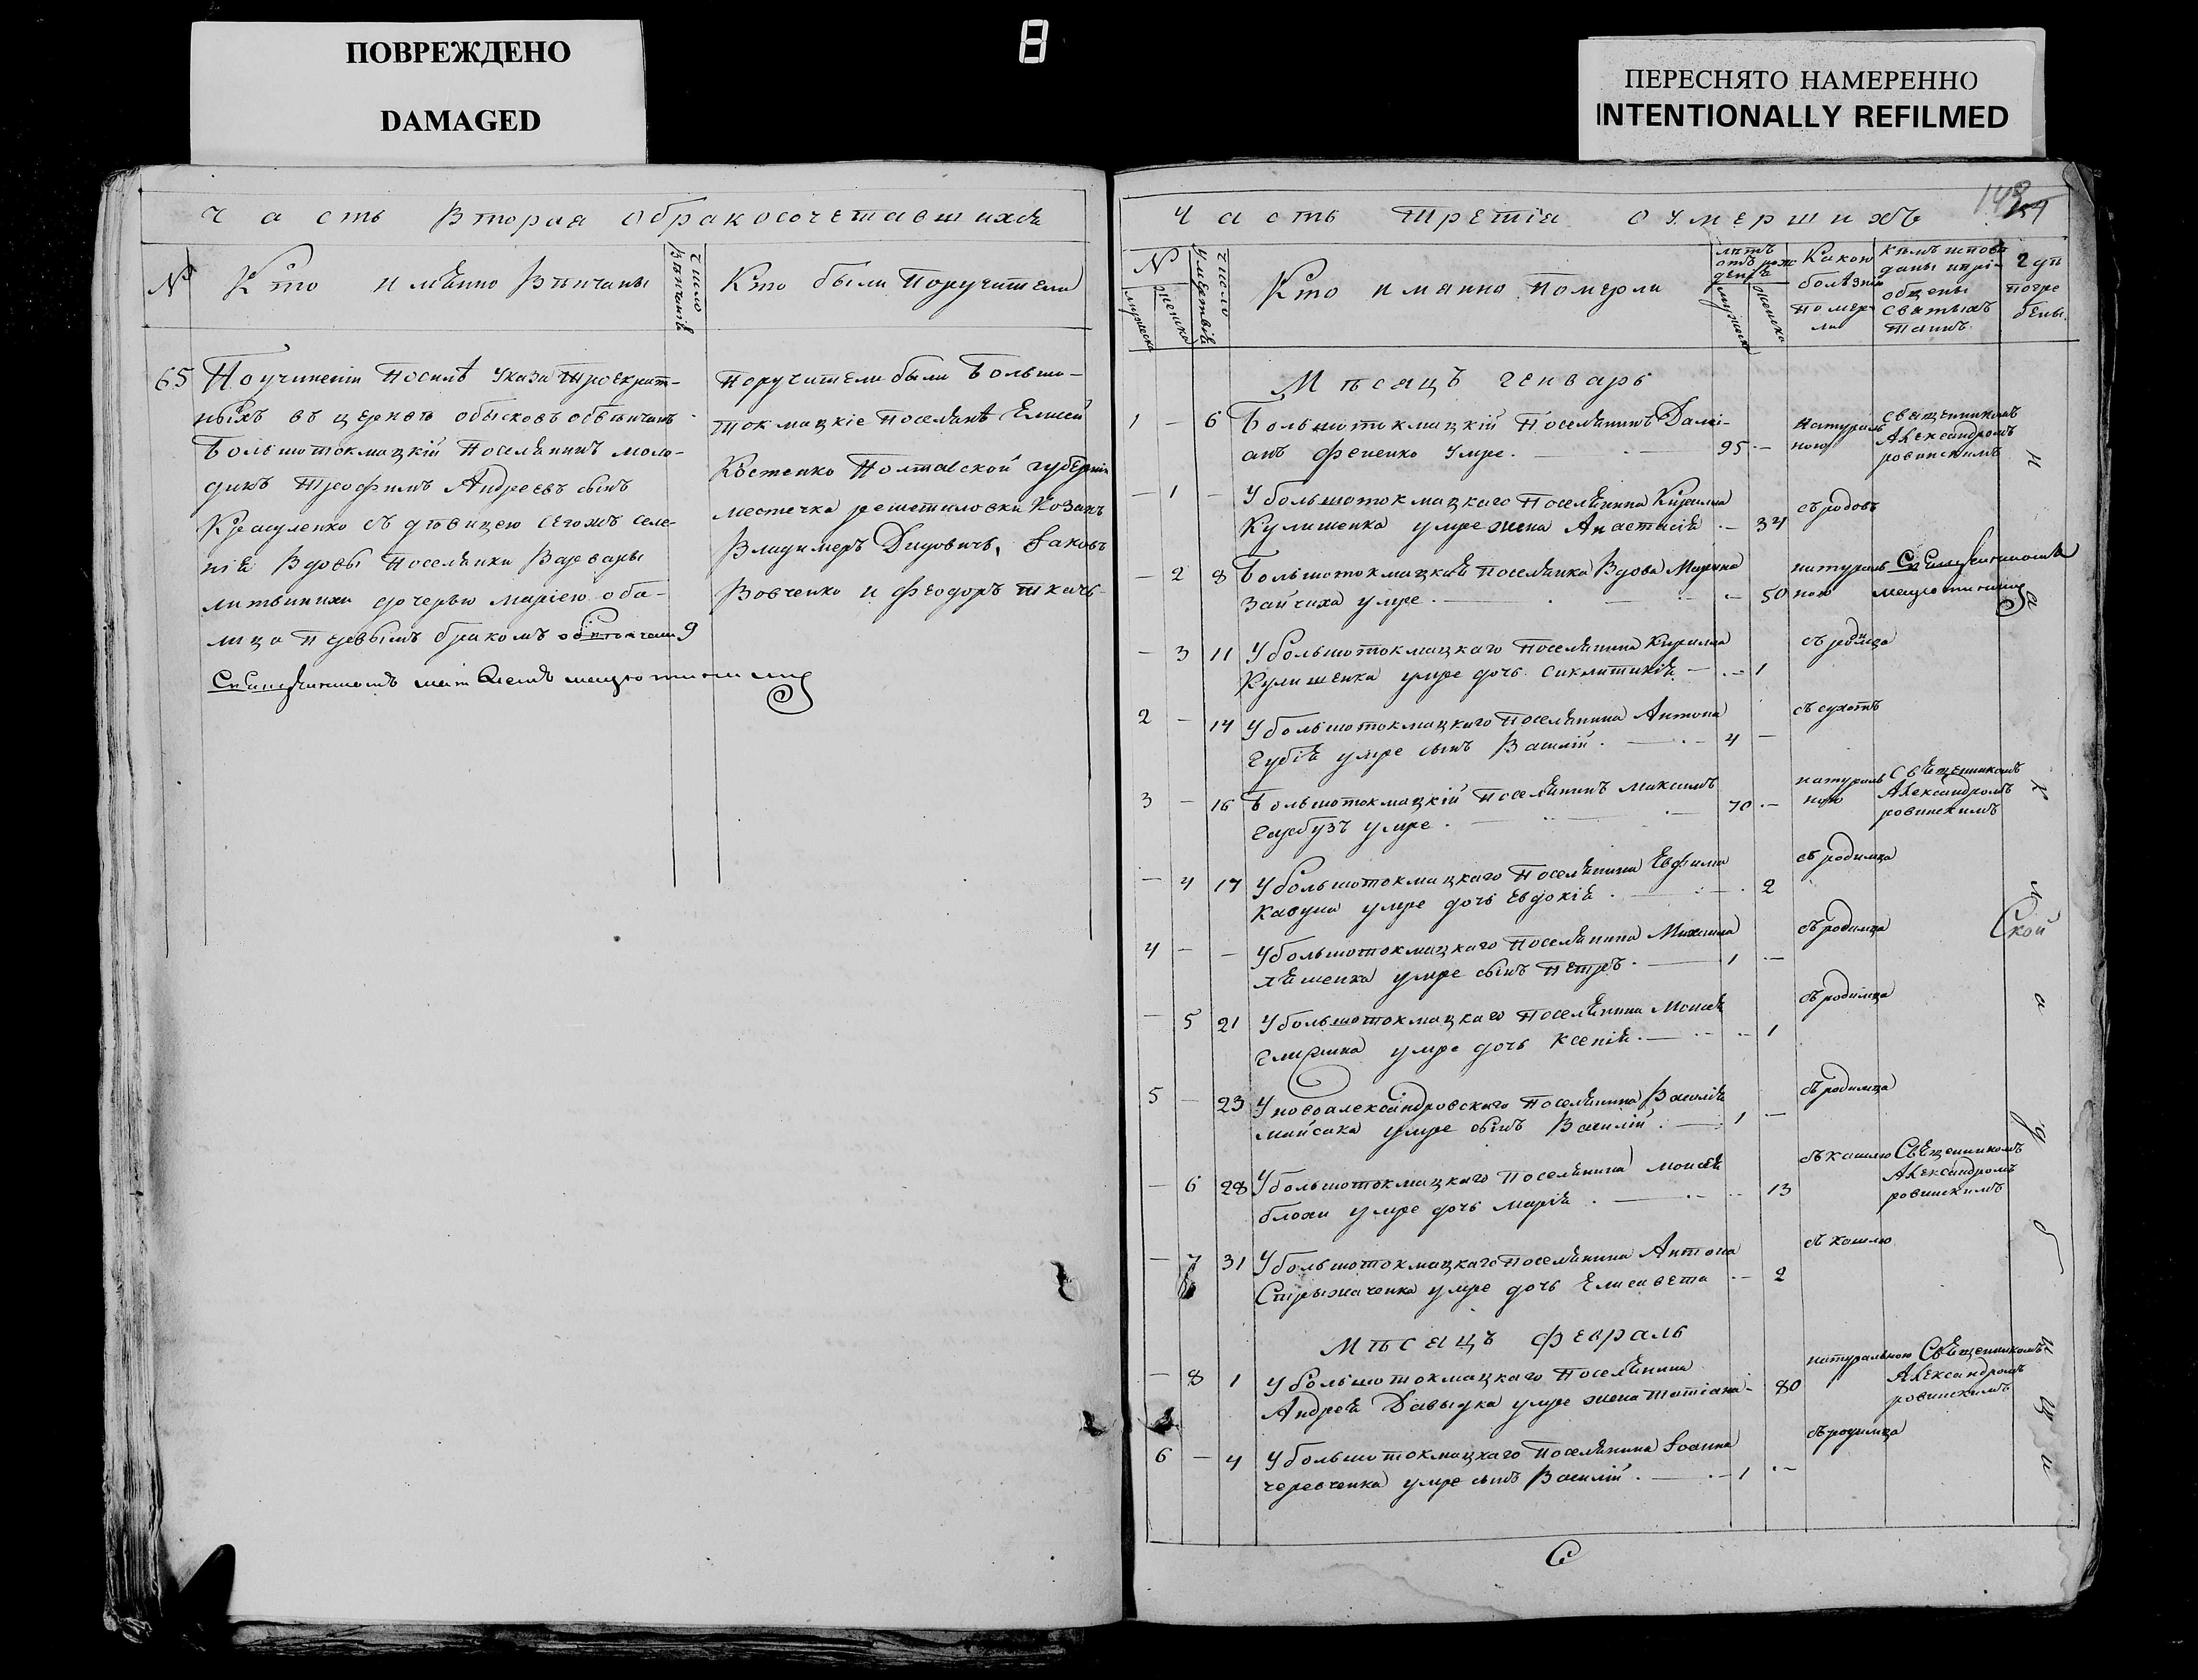 ПОВРЕЖДЕНО
DAMAGED
8
ПЕРЕСНЯТО НАМЕРЕННО
INTENTIONALLY REFILMED
Часть вторая о бракосочетавшихся
№
Кто имянно венчаны
число венчанія
Кто были поручители
65 По учиненіи после указа троекрат-
ныхъ въ церкве обысковъ обвенчанъ
большотокмацкій поселянинъ моло-
дикъ Трофимъ Андреевъ сынъ
съ девицею сегожъ селе-
нія вдовы поселянки Варвары
литвинихи дочерью Маріею оба-
лица первымъ бракомъ обвенчани 9
Священникомъ
Поручители были Большо-
токмацкіе поселяне Елисей
Костенко Полтавской губерніи
местечка решетиловки козакъ
Владимеръ Дидовичъ, Іаковъ
Вовченко и Феодоръ ткачь
148
Часть третія о умершихъ
№
мужеска
женска
число умертвія
Кто имянно померли
летъ отъ рожденія
мужеска
женска
Какою болезнію померли
кемъ исповеданы и пріобщены святыхъ таинъ
где погребены
Месяцъ генварь
1 — 6 Большотокмацкій поселянинъ Дамі-
анъ Фененко умре. 95 — натуральною священникомъ Александромъ ровинскимъ
— 1 — У большотокмацкаго поселянина Кирилла
Кулишенка умре жена Анастасія — 34 съ родовъ
— 2 8 Большотокмацкая поселянка вдова Марина
Зайчиха умре — 50 натуральною Священникомъ
— 3 11 У большотокмацкаго поселянина Кирилла
Кулишенка умре дочь Сиклитикія — 1 съ родимца
2 — 14 У большотокмацкаго поселянина Антона
Губія умре сынъ Василій. 4 — съ сухотъ
3 — 16 Большотокмацкій поселянинъ Максимъ
гарбузъ умре. 70 — натуральною Священникомъ Александромъ ровинскимъ
— 4 17 У большотокмацкаго поселянина Евфима
Кавуна умре дочь Евдокія. 2 съ родимца
4 — — У большотокмацкаго поселянина Михаила
умре сынъ Петръ. 1 — съ родимца
— 5 21 У большотокмацкаго поселянина Моисея
умре дочь Ксенія. — 1 съ родимца
5 — 23 У новоалександровскаго поселянина Василія
майсака умре сынъ Василій. 1 — съ родимца
— 6 28 У большотокмацкаго поселянина Моисея
блохи умре дочь Марія. — 13 съ кашлю Священникомъ Александромъ ровинскимъ
— 7 31 У большотокмацкаго поселянина Антона
Стрыжаченка умре дочь Елисавета — 2 съ кашлю
Месяцъ февраль
— 8 1 У большотокмацкаго поселянина
Андрея Давыдка умре жена Татіана — 80 натуральною Священникомъ Александромъ ровинскимъ
6 — 4 У большотокмацкаго поселянина Іоанна
червченка умре сынъ Василій. 1 — съ родимца
на
кладбищи